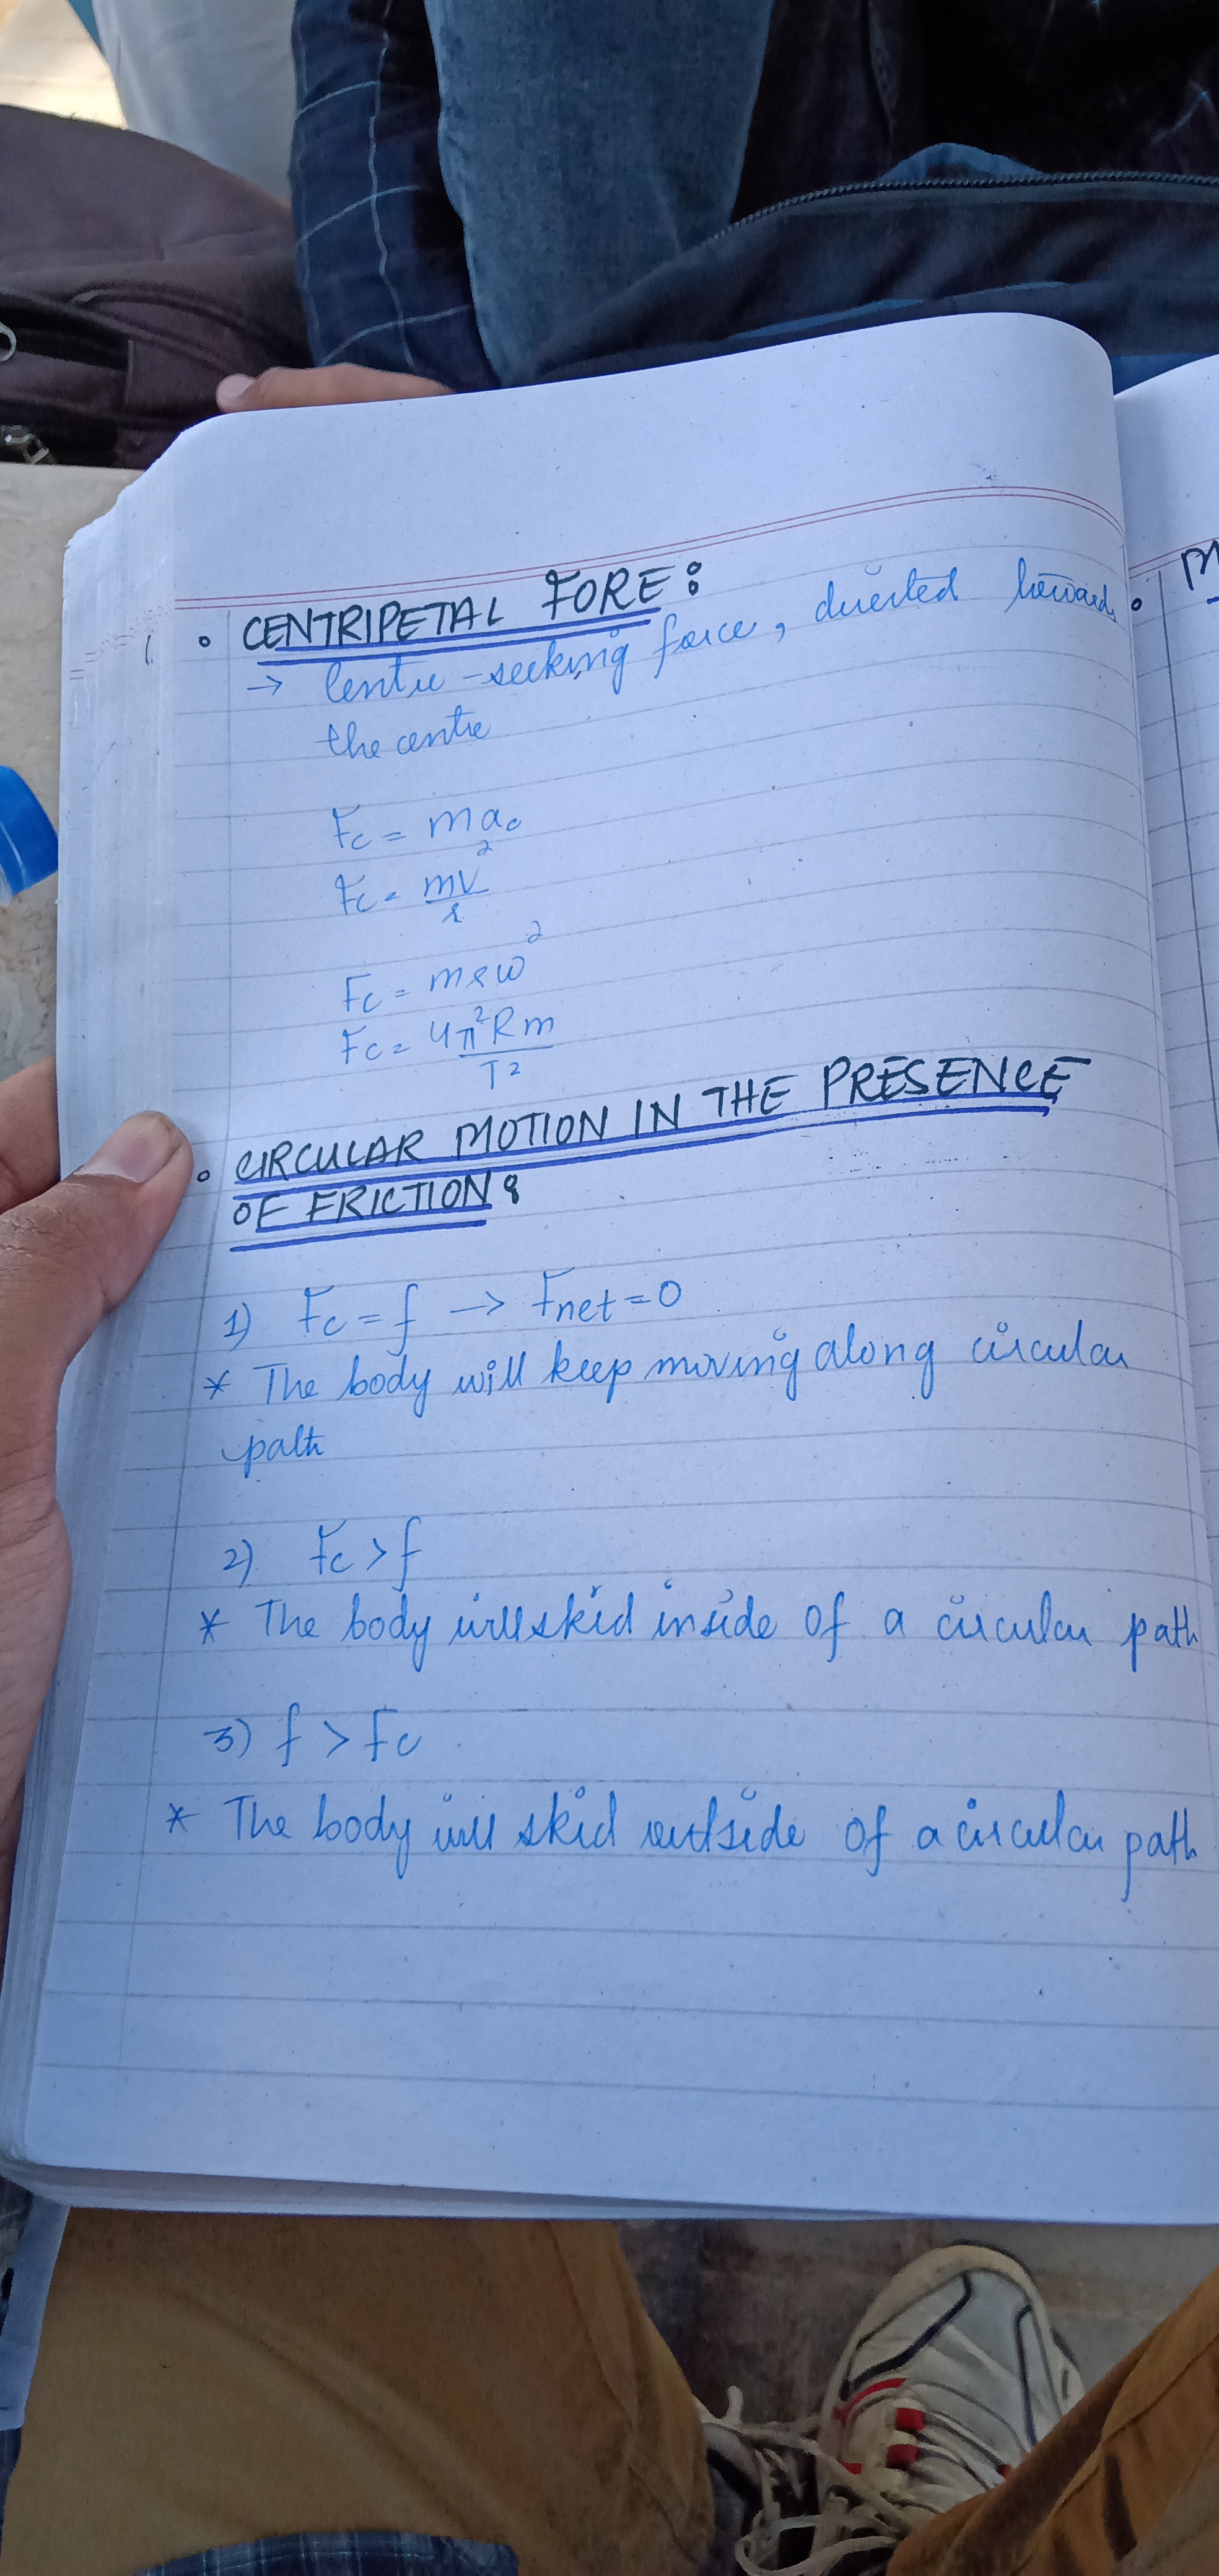 • CENTRIPETAL FORE:
→ Centre-seeking force, directed towards
the centre
Fc = mac
Fc = mv²/r
Fc = mrω²
Fc = 4π²Rm/T²
• CIRCULAR MOTION IN THE PRESENCE
OF FRICTION:
1) Fc = f → Fnet = 0
* The body will keep moving along circular
path
2) Fc > f
* The body will skid inside of a circular path
3) f > Fc
* The body will skid outside of a circular path
• M